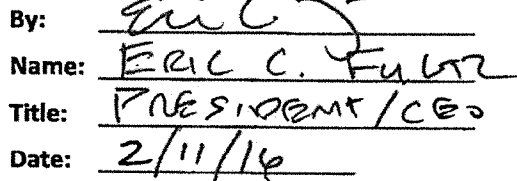 By: Eric
Name: ERIC C. FULTZ
Title: PRESIDENT/CEO
Date: 2/11/16